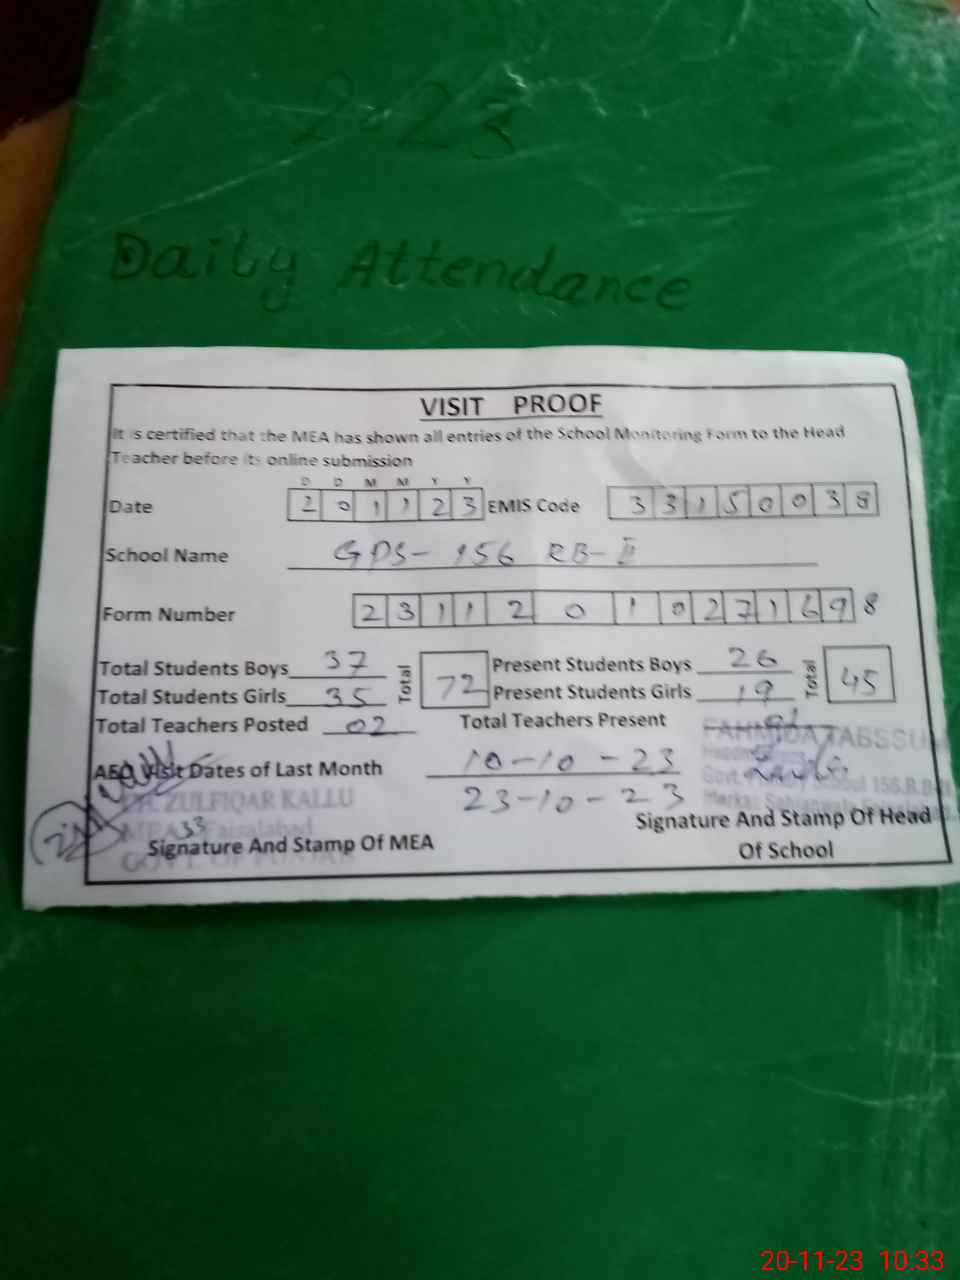 2023
Daily Attendance
VISIT PROOF
It is certified that the MEA has shown all entries of the School Monitoring Form to the Head
Teacher before its online submission
D D M M Y Y
Date 2 0 1 1 2 3 EMIS Code 3 3 1 5 0 0 3 8
School Name GPS- 156 RB-II
Form Number 2 3 1 1 2 0 1 0 2 7 1 6 9 8
Total Students Boys 37 Total 72 Present Students Boys 26 Total 45
Total Students Girls 35 Present Students Girls 19
Total Teachers Posted 02 Total Teachers Present 01
FAHMIDA TABSSU
AEO Visit Dates of Last Month 10-10-23
23-10-23
ZULFIQAR KALLU
MEA 33 Faisalabad
GOVT. OF PUNJAB
Signature And Stamp Of MEA
Signature And Stamp Of Head
Of School
20-11-23 10:33